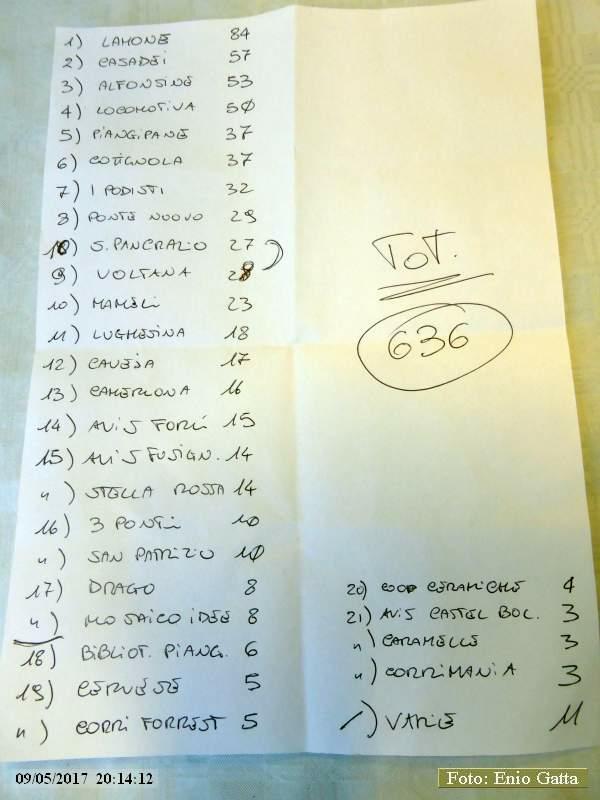 1) LAMONE 84
2) CASADEI 57
3) ALFONSINE 53
4) LOCOMOTIVA 50
5) PIANGIPANE 37
6) COTIGNOLA 37
7) I PODISTI 32
8) PONTE NUOVO 29
10) S. PANCRAZIO 27
9) VOLTANA 28
10) MAMELI 23
11) LUGHESINA 18
12) CAVEJA 17
13) CAMERLONA 16
14) AVIS FORLÌ 15
15) AVIS FUSIGN. 14
") STELLA ROSSA 14
16) 3 PONTI 10
") SAN PATRIZIO 10
17) DRAGO 8
") MOSAICO IDEE 8
18) BIBLIOT. PIANG. 6
19) CERVESE 5
") CORRI FORREST 5
TOT.
636
20) COOP CERAMICHE 4
21) AVIS CASTEL BOL. 3
") CARAMELLE 3
") CORRIMANIA 3
/) VARIE 11
09/05/2017 20:14:12
Foto: Enio Gatta